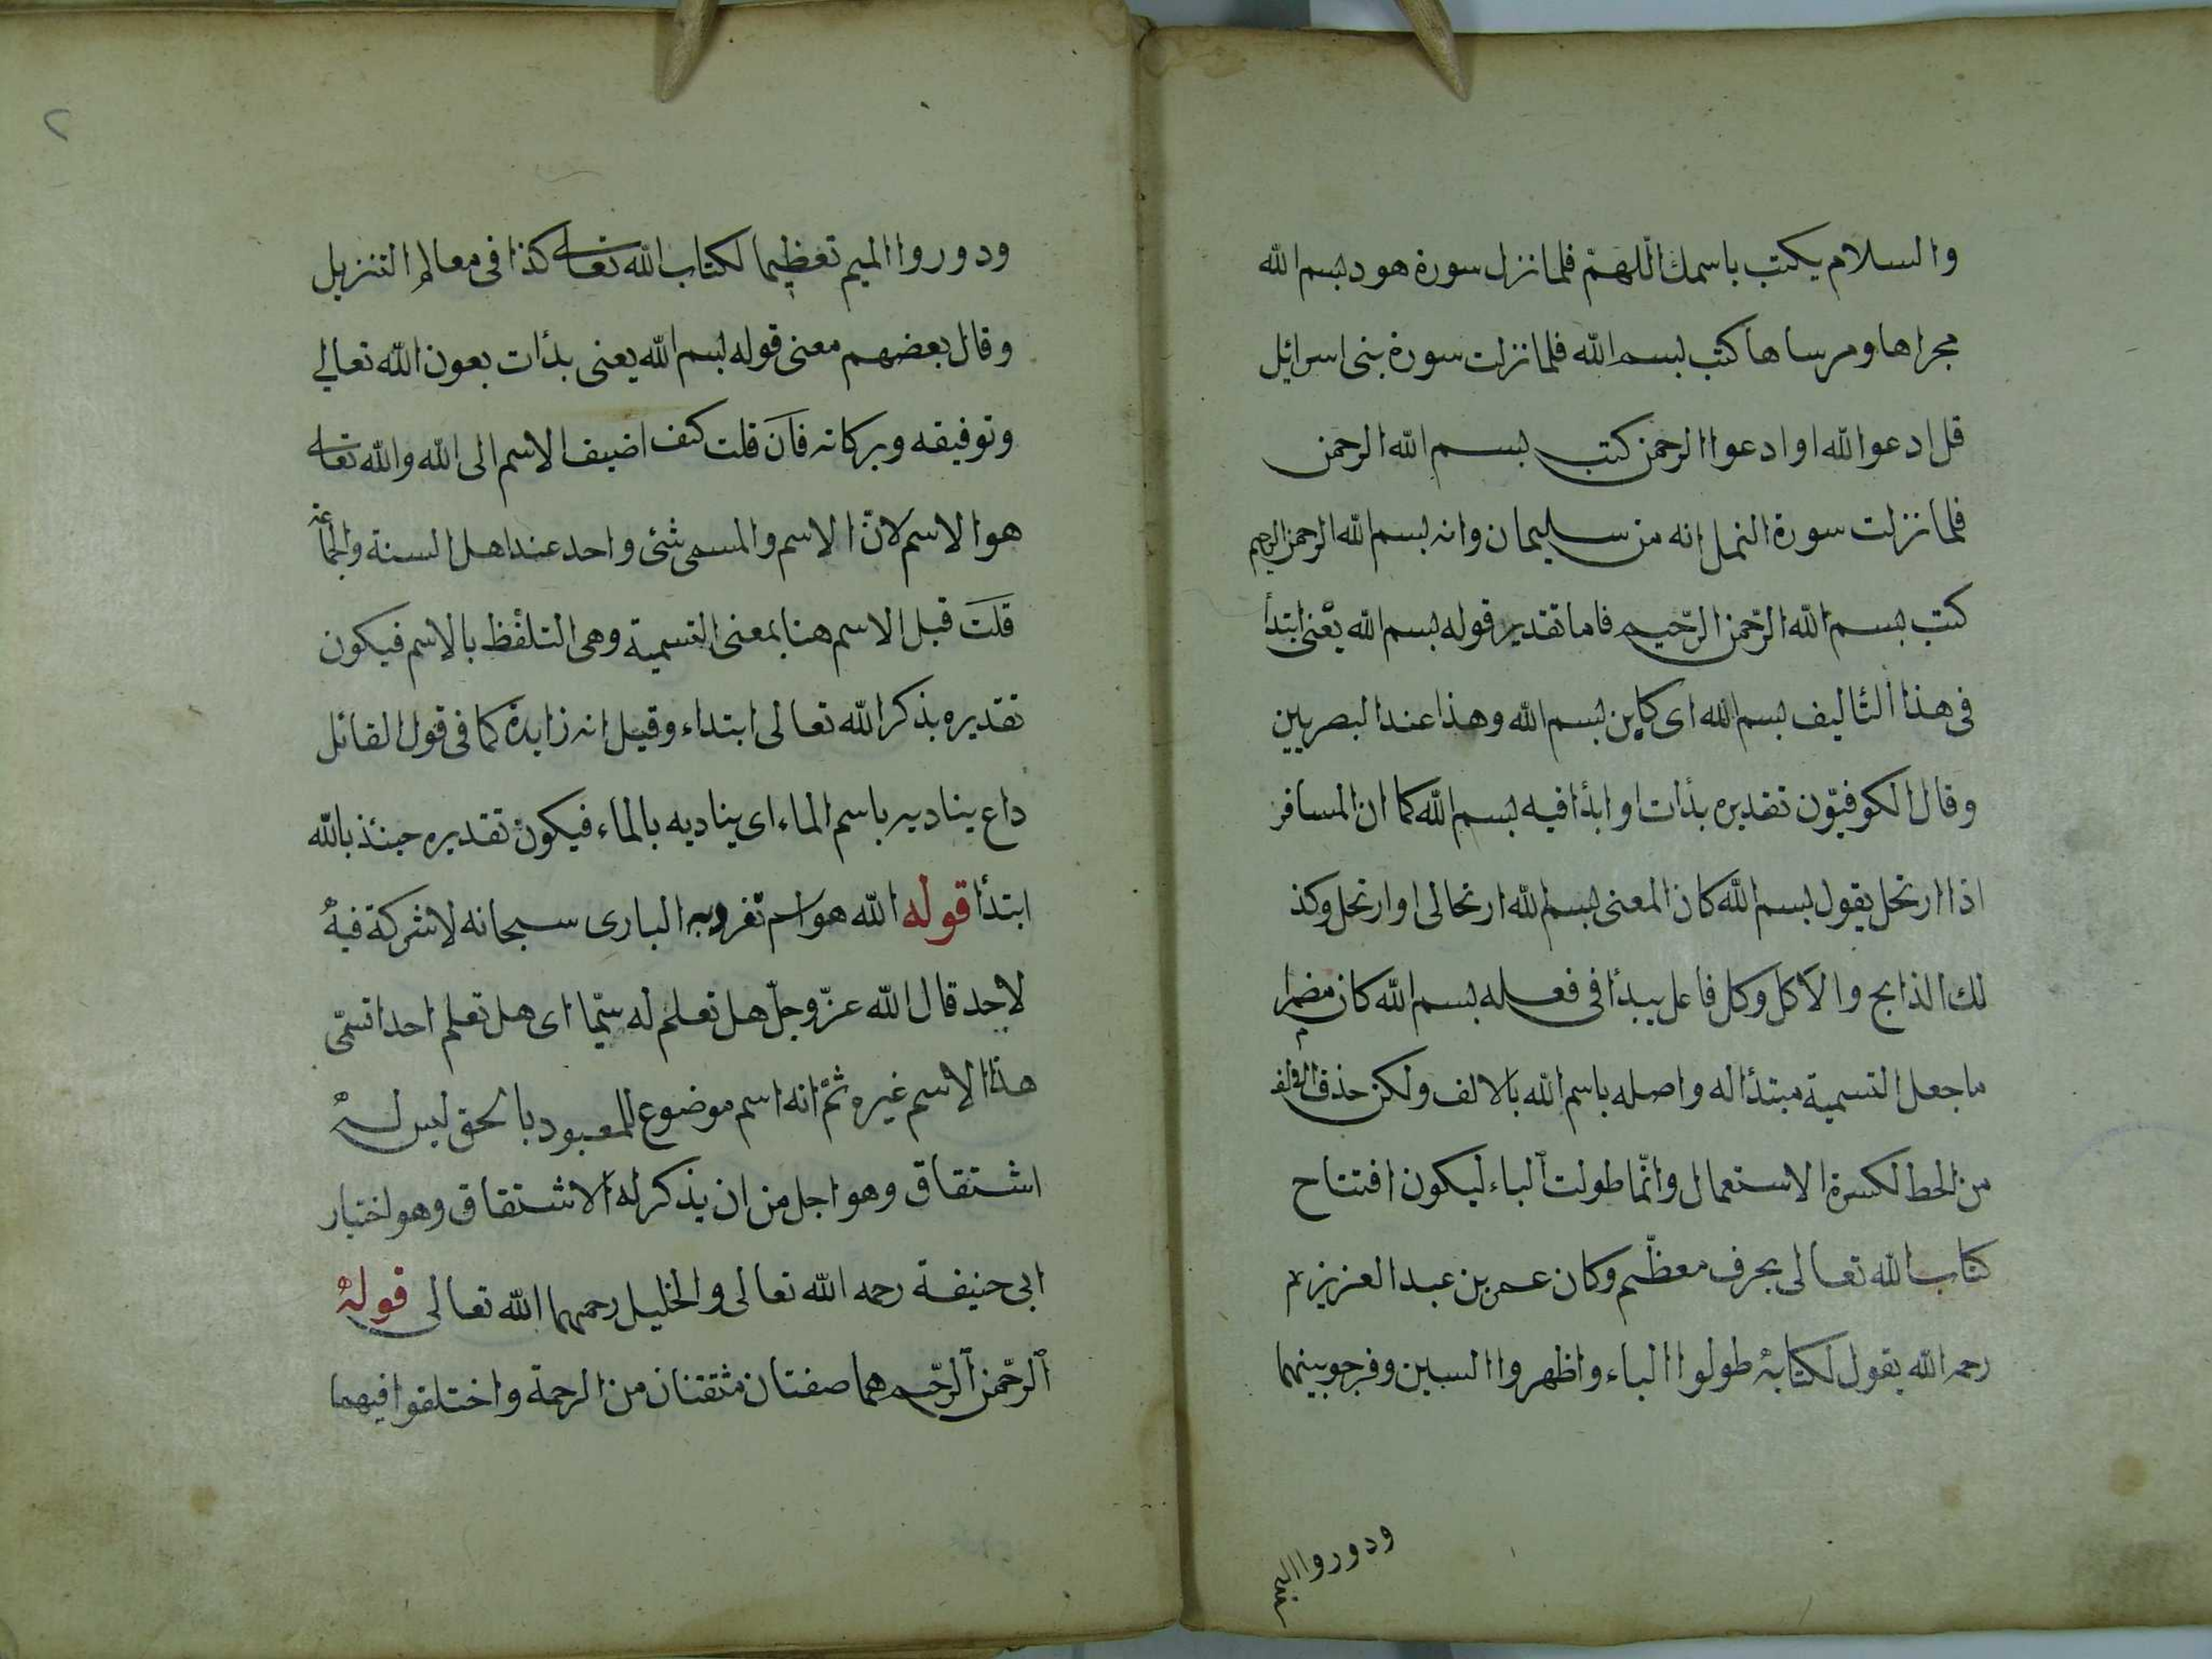 والسلام يكتب باسمك اللهمّ فلما نزل سورة هود بسم الله
مجراها ومرساها كتب بسم الله فلما نزلت سورة بنى اسرائيل
قل ادعوا الله او ادعوا الرحمن كتب بسم الله الرحمن
فلما نزلت سورة النمل انه من سليمان وانه بسم الله الرحمن الرحيم
كتب بسم الله الرّحمن الرّحيم فاما تقدير قوله بسم الله يعنى ابتدأ
فى هذا التاليف بسم الله اى كاين بسم الله وهذا عند البصريين
وقال الكوفيّون تقديره بدأت او ابدأ فيه بسم الله كما ان المسافر
اذا ارتحل يقول بسم الله كان المعنى بسم الله ارتحالى او ارتحل وكذ
لك الذابح والاكل وكل فاعل يبدأ فى فعله بسم الله كان مضمرا
ما جعل التسمية مبتدأ له واصله باسم الله بالالف ولكن حذف الالف
من الخط لكسرة الاستعمال وانّما طولت الباء ليكون افتتاح
كتاب الله تعالى بحرف معظّم وكان عمر بن عبد العزيز
رحمه الله يقول لكتابه طولوا الباء واظهروا السين وفرجو بينهما
ودوروا الميم
ودوروا الميم تعظيما لكتاب الله تعالى كذا فى معالم التنزيل
وقال بعضهم معنى قوله بسم الله يعنى بدأت بعون الله تعالى
وتوفيقه وبركاته فان قلت كيف اضيف الاسم الى الله والله تعالى
هو الاسم لانّ الاسم والمسمى شئ واحد عند اهل السنة والجماعة
قلت قيل الاسم هنا بمعنى التسمية وهى التلفظ بالاسم فيكون
تقديره بذكر الله تعالى ابتداء وقيل انه زايدة كما فى قول القائل
داع يناديه باسم الماء اى يناديه بالماء فيكون تقديره حينئذ بالله
ابتدأ قوله الله هو اسم تفرد به البارى سبحانه لا شركة فيه
لاحد قال الله عزّ وجلّ هل تعلم له سمّيا اى هل تعلم احدا تسمّى
هذا الاسم غيره ثمّ انه اسم موضوع للمعبود بالحق ليس له
اشتقاق وهو اجل من ان يذكر له الاشتقاق وهو اختيار
ابى حنيفة رحمه الله تعالى والخليل رحمهما الله تعالى قوله
الرّحمن الرّحيم هما صفتان مثقتنان من الرحمة واختلفوا فيهما
٢